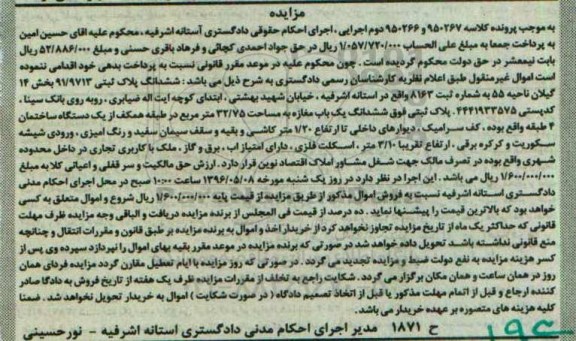 مزایده
به موجب پرونده کلاسه ۹۵۰۲۶۷ و ۹۵۰۲۶۶ دوم اجرایی ، اجرای احکام حقوقی دادگستری آستانه اشرفیه ، محکوم علیه اقای حسین امین
به پرداخت جمعا به مبلغ علی الحساب ۱/۰۵۷/۷۲۰/۰۰۰ ریال در حق جواد احمدی کچائی و فرهاد باقری حسنی و مبلغ ۵۲/۸۸۶/۰۰۰ ریال
بابت نیمعشر در حق دولت محکوم گردیده است . چون محکوم علیه در موعد مقرر قانونی نسبت به پرداخت بدهی خود اقدامی ننموده
است اموال غیرمنقول طبق اعلام نظریه کارشناسان رسمی دادگستری به شرح ذیل می باشد : ششدانگ پلاک ثبتی ۹۱/۹۷۱۳ بخش ۱۴
گیلان ناحیه ۵۵ به شماره ثبت ۸۱۶۳ واقع در استانه اشرفیه ، خیابان شهید بهشتی ، ابتدای کوچه ایت اله ضیابری ، روبه روی بانک سینا ،
کدپستی ۴۴۴۱۹۳۳۵۷۵ . پلاک ثبتی فوق ششدانگ یک باب مغازه به مساحت ۳۲/۷۵ متر مربع در طبقه همکف از یک دستگاه ساختمان
۴ طبقه واقع بوده . کف سرامیک ، دیوارهای داخلی تا ارتفاع ۱/۲۰ متر کاشی و بقیه و سقف سیمان سفید و رنگ امیزی ، ورودی شیشه
سکوریت و کرکره برقی ، ارتفاع تقریبا ۳/۱۰ متر ، اسکلت فلزی ، دارای امتیاز اب ، برق و گاز ، ملک با کاربری تجاری در داخل محدوده
شهری واقع بوده در تصرف مالک جهت شغل مشاور املاک اقتصاد نوین قرار دارد . ارزش حق مالکیت و سر قفلی و اعیانی کلا به مبلغ
۱/۶۰۰/۰۰۰/۰۰۰ ریال می باشد . این اجرا در نظر دارد در روز یک شنبه مورخه ۱۳۹۶/۰۵/۰۸ ساعت ۱۰:۰۰ صبح در محل اجرای احکام مدنی
دادگستری استانه اشرفیه نسبت به فروش اموال مذکور از طریق مزایده از قیمت پایه ۱/۶۰۰/۰۰۰/۰۰۰ ریال شروع و اموال متعلق به کسی
خواهد بود که بالاترین قیمت را پیشنهاد نماید . ده درصد از قیمت فی المجلس از برنده مزایده دریافت و الباقی وجه مزایده ظرف مهلت
قانونی که حداکثر یک ماه از تاریخ مزایده تجاوز نخواهد کرد از خریدار اخذ و اموال به برنده مزایده بر طبق قانون و مقررات انتقال و چنانچه
منع قانونی نداشته باشد تحویل داده خواهد شد در صورتی که برنده مزایده در موعد مقرر بقیه بهای اموال را نپردازد سپرده وی پس از
کسر هزینه مزایده به نفع دولت ضبط و مزایده تجدید می گردد . در صورتی که روز مزایده با ایام تعطیل مقارن گردد مزایده فردای همان
روز در همان ساعت و همان مکان برگزار می گردد . شکایت راجع به تخلف از مقررات مزایده ظرف یک هفته از تاریخ فروش به دادگاه صادر
کننده ارجاع و قبل از اتمام مهلت مذکور یا قبل از اتخاذ تصمیم دادگاه ( در صورت شکایت ) اموال به خریدار تحویل نخواهد شد . ضمنا
کلیه هزینه های متصوره بر عهده خریدار می باشد .
ح ۱۸۷۱ مدیر اجرای احکام مدنی دادگستری استانه اشرفیه - نورحسینی